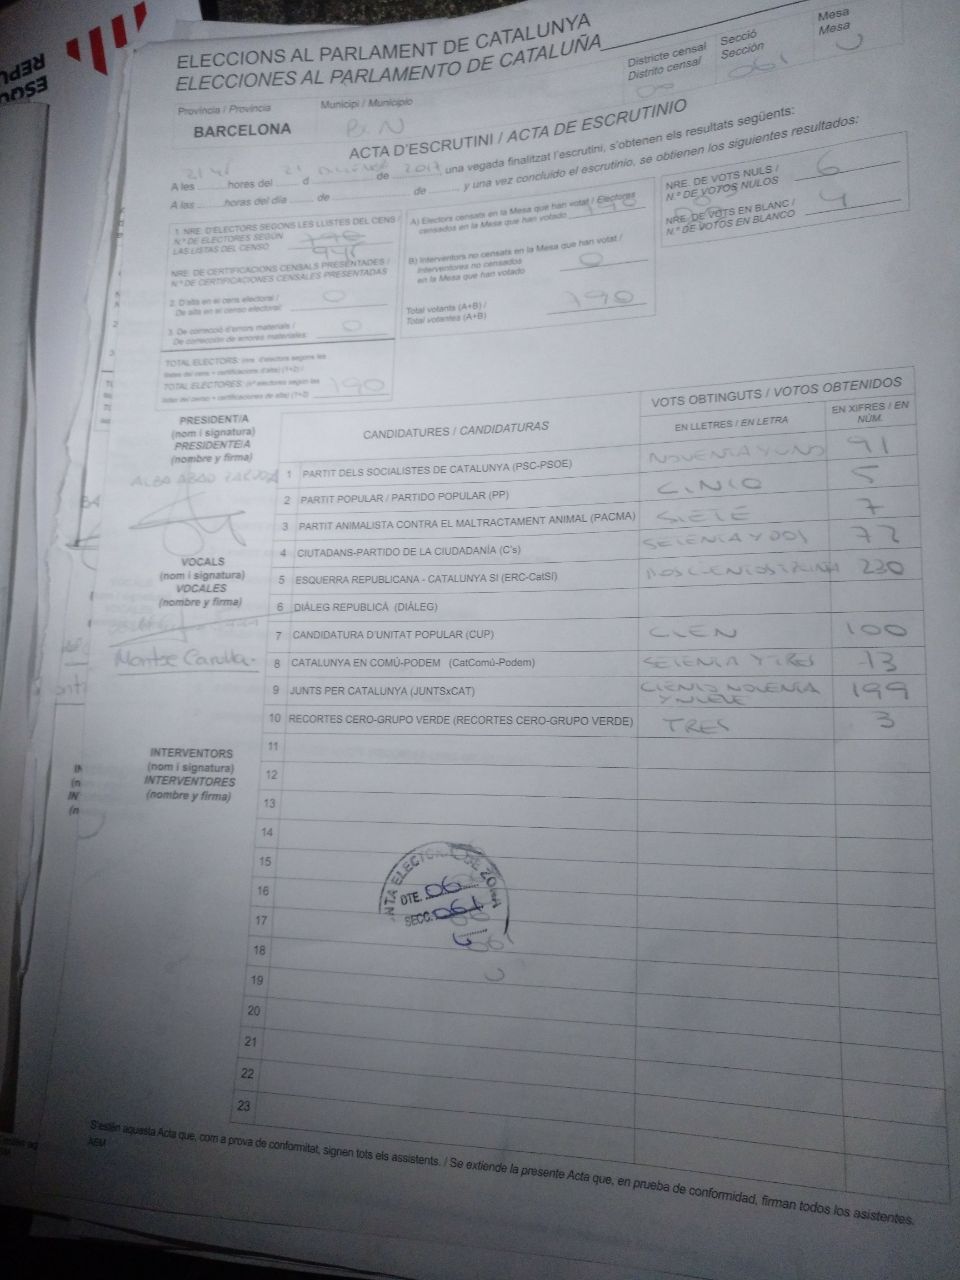 ELECCIONS AL PARLAMENT DE CATALUNYA
ELECCIONES AL PARLAMENTO DE CATALUÑA
Districte censal
Distrito censal
Secció
Sección
061
Mesa
Mesa
U
Província / Provincia
BARCELONA
Municipi / Municipio
BCN
ACTA D'ESCRUTINI / ACTA DE ESCRUTINIO
A les hores del 21 d de 2017 una vegada finalitzat l'escrutini, s'obtenen els resultats següents:
A las horas del día de de y una vez concluido el escrutinio, se obtienen los siguientes resultados:
1. NRE. D'ELECTORS SEGONS LES LLISTES DEL CENS /
N.º DE ELECTORES SEGÚN
LAS LISTAS DEL CENSO
NRE. DE CERTIFICACIONS CENSALS PRESENTADES /
N.º DE CERTIFICACIONES CENSALES PRESENTADAS
2. D'alta en el cens electoral /
De alta en el censo electoral: 0
3. De correcció d'errors materials /
De corrección de errores materiales: 0
TOTAL ELECTORS: (nre. d'electors segons les
llistes del cens + certificacions d'alta) (1+2) /
TOTAL ELECTORES: (nº electores según las
listas del censo + certificaciones de alta) (1+2) 790
A) Electors censats en la Mesa que han votat / Electores
censados en la Mesa que han votado 790
B) Interventors no censats en la Mesa que han votat /
Interventores no censados
en la Mesa que han votado 0
Total votants (A+B) /
Total votantes (A+B) 790
NRE. DE VOTS NULS /
N.º DE VOTOS NULOS 6
NRE. DE VOTS EN BLANC /
N.º DE VOTOS EN BLANCO 4
PRESIDENT/A
(nom i signatura)
PRESIDENTE/A
(nombre y firma)
ALBA ABAD
VOCALS
(nom i signatura)
VOCALES
(nombre y firma)
Montse
INTERVENTORS
(nom i signatura)
INTERVENTORES
(nombre y firma)
CANDIDATURES / CANDIDATURAS
VOTS OBTINGUTS / VOTOS OBTENIDOS
EN LLETRES / EN LETRA
EN XIFRES / EN NÚM.
1 PARTIT DELS SOCIALISTES DE CATALUNYA (PSC-PSOE) NOVENTA Y UNO 91
2 PARTIT POPULAR / PARTIDO POPULAR (PP) CINCO 5
3 PARTIT ANIMALISTA CONTRA EL MALTRACTAMENT ANIMAL (PACMA) SIETE 7
4 CIUTADANS-PARTIDO DE LA CIUDADANÍA (C's) SETENTA Y DOS 72
5 ESQUERRA REPUBLICANA - CATALUNYA SÍ (ERC-CatSÍ) DOSCIENTOS TREINTA 230
6 DIÀLEG REPUBLICÀ (DIÀLEG)
7 CANDIDATURA D'UNITAT POPULAR (CUP) CIEN 100
8 CATALUNYA EN COMÚ-PODEM (CatComú-Podem) SETENTA Y TRES 73
9 JUNTS PER CATALUNYA (JUNTSxCAT) CIENTO NOVENTA Y NUEVE 199
10 RECORTES CERO-GRUPO VERDE (RECORTES CERO-GRUPO VERDE) TRES 3
11
12
13
14
15
16
17
18
19
20
21
22
23
JUNTA ELECTORAL DE ZONA
DTE. 06
SECC. 061
U
S'estén aquesta Acta que, com a prova de conformitat, signen tots els assistents. / Se extiende la presente Acta que, en prueba de conformidad, firman todos los asistentes.